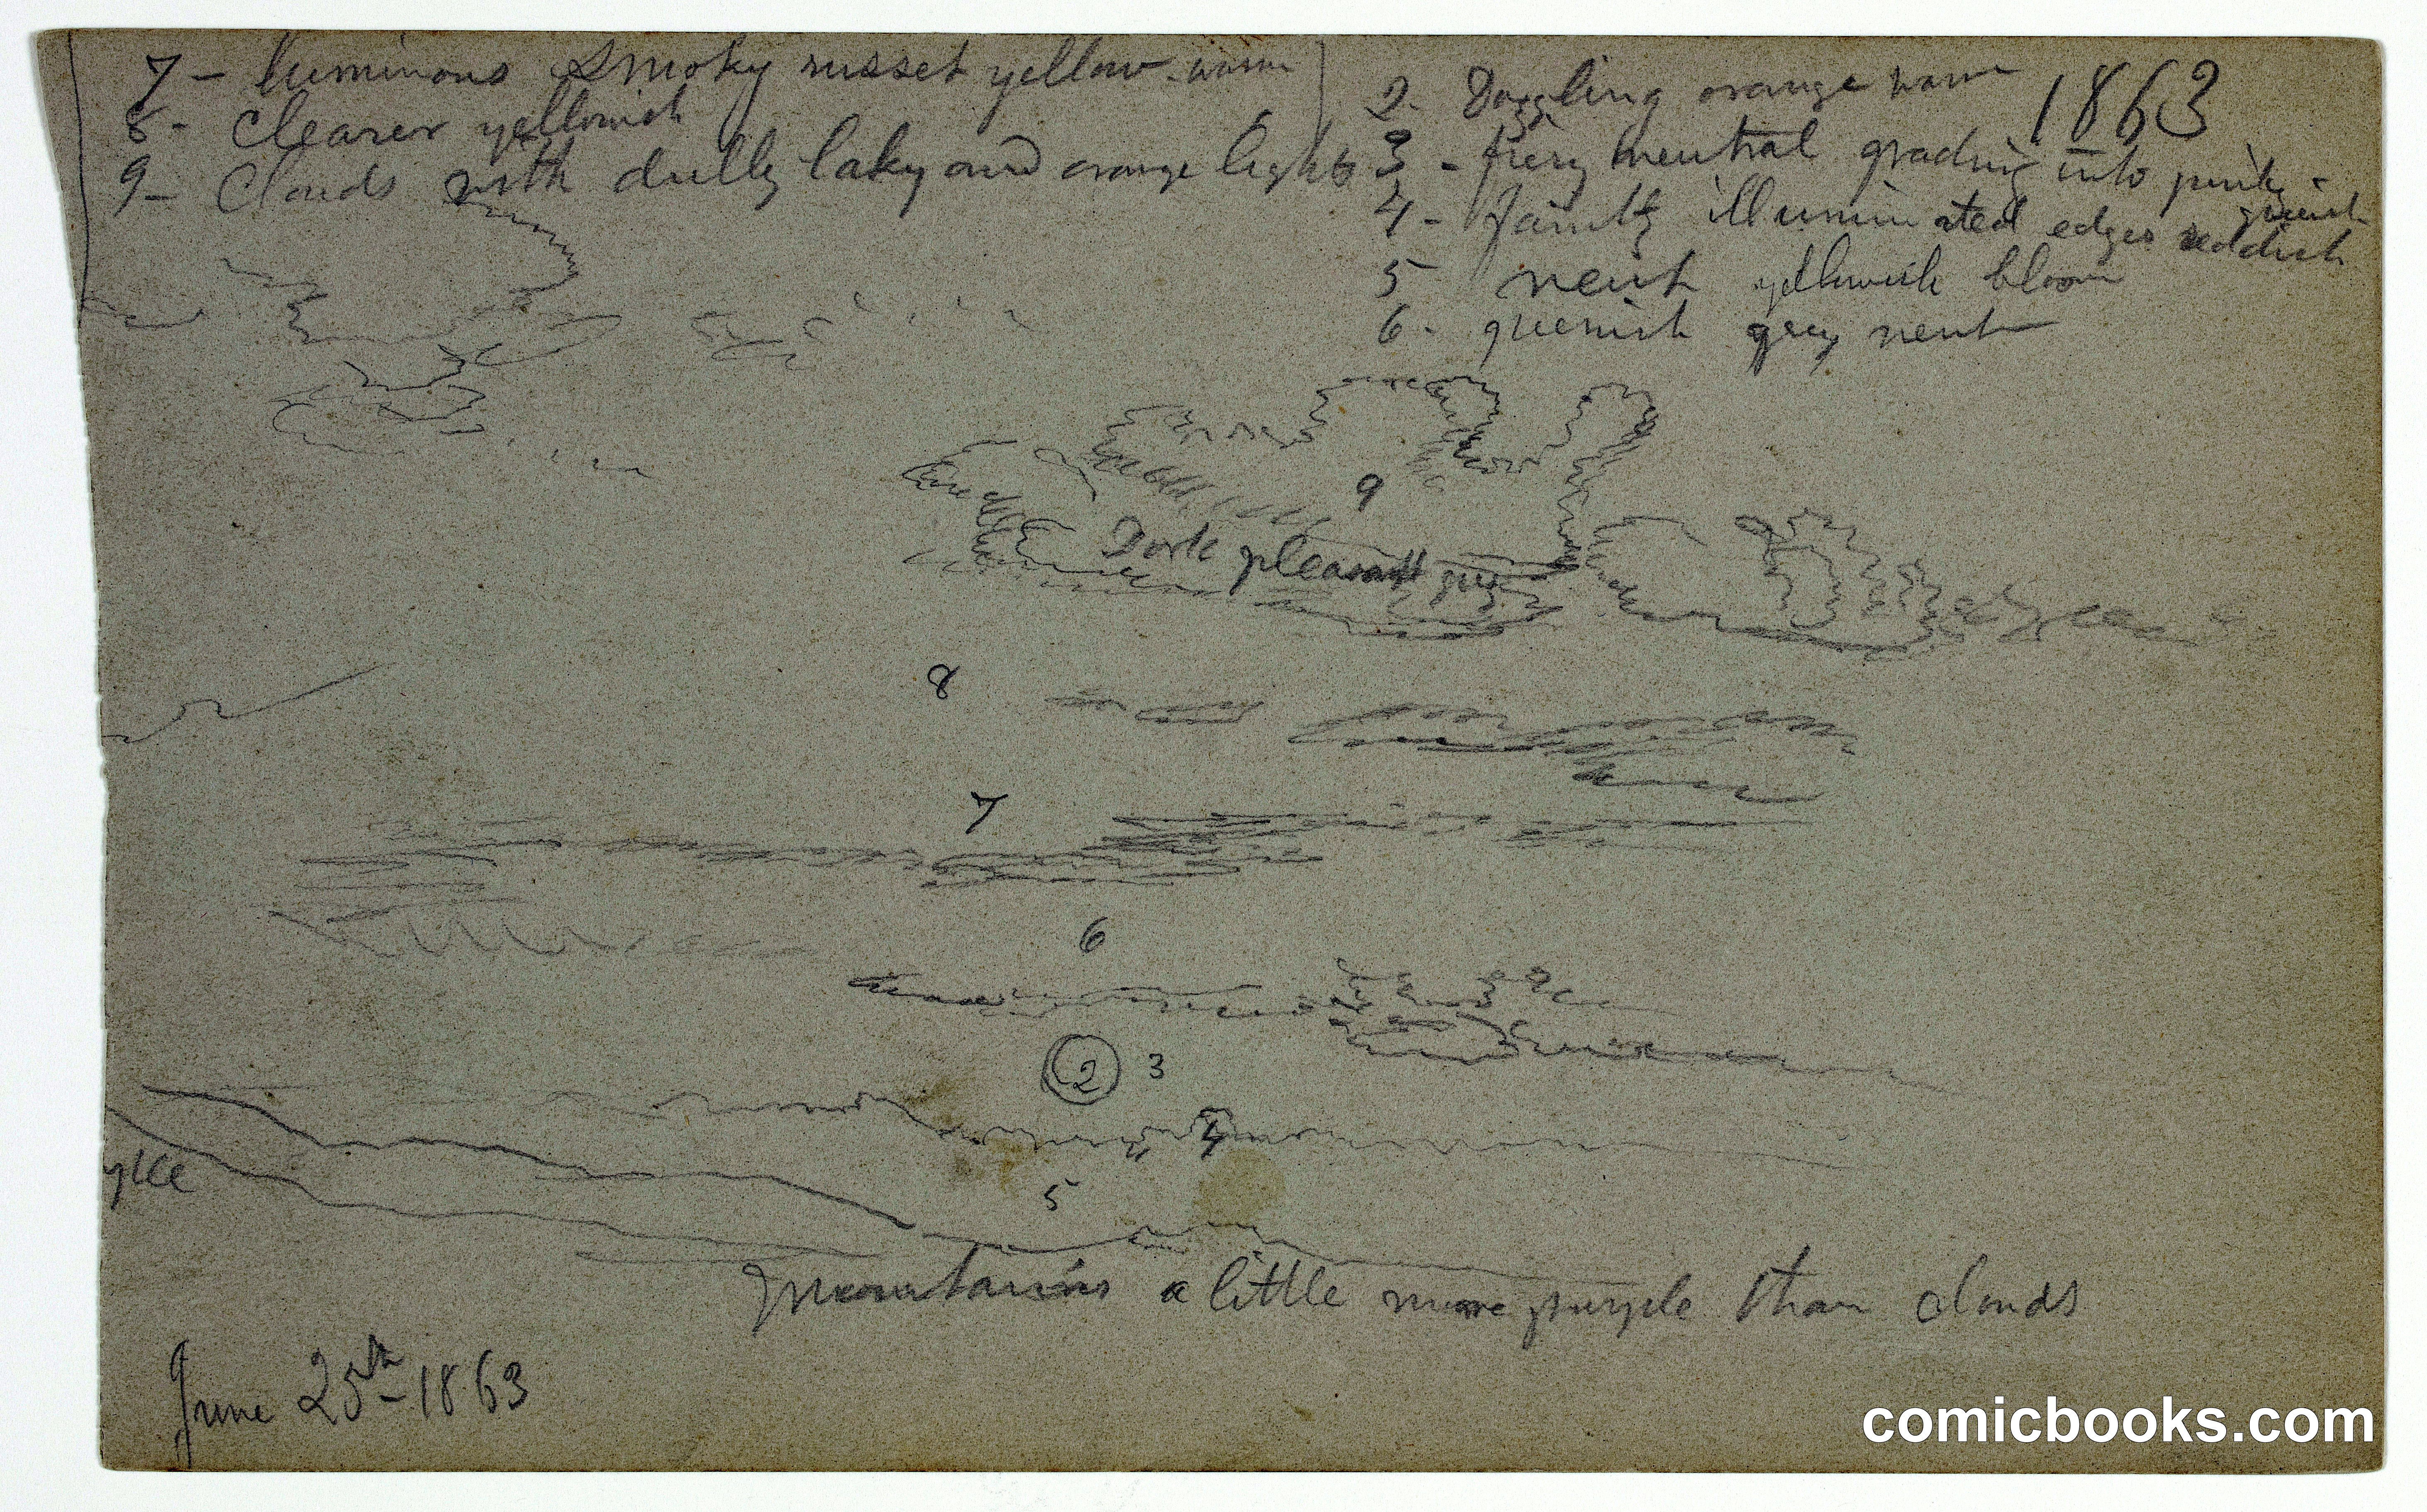 7 - luminous smoky russet yellow - warm
8 - Clearer yellowish
9 - Clouds with dully laky and orange lights
1863
2 - Dazzling orange warm
3 - fiery neutral grading into pinky -
greenish
4 - faintly illuminated edges reddish
5 neut yellowish bloom
6 - greenish grey neut
9
Dark pleasant grey
8
7
6
2 3
4
5
Mountains a little more purple than clouds
June 25th - 1863
comicbooks.com